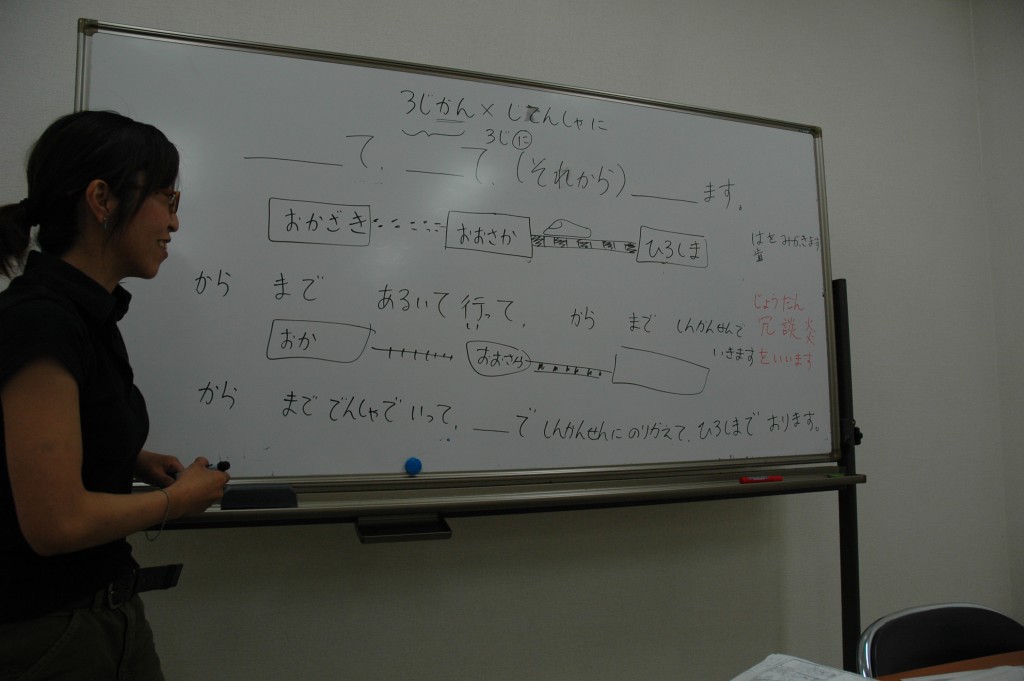 3じかん×じてんしゃに
3じに
て、 て、(それから) ます。
おかざき おおさか ひろしま
はをみがきます
歯
から まで あるいて行って、 から まで しんかんせんで
い
いきます
じょうだん
冗談
をいいます
おか おおさか
から まで でんしゃでいって、 で しんかんせんにのりかえて、ひろしまで おります。